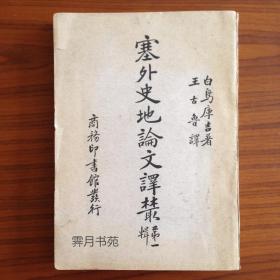 白鳥庫吉著
王古魯譯
塞外史地論文譯叢
第一輯
商務印書館發行
霁月书苑